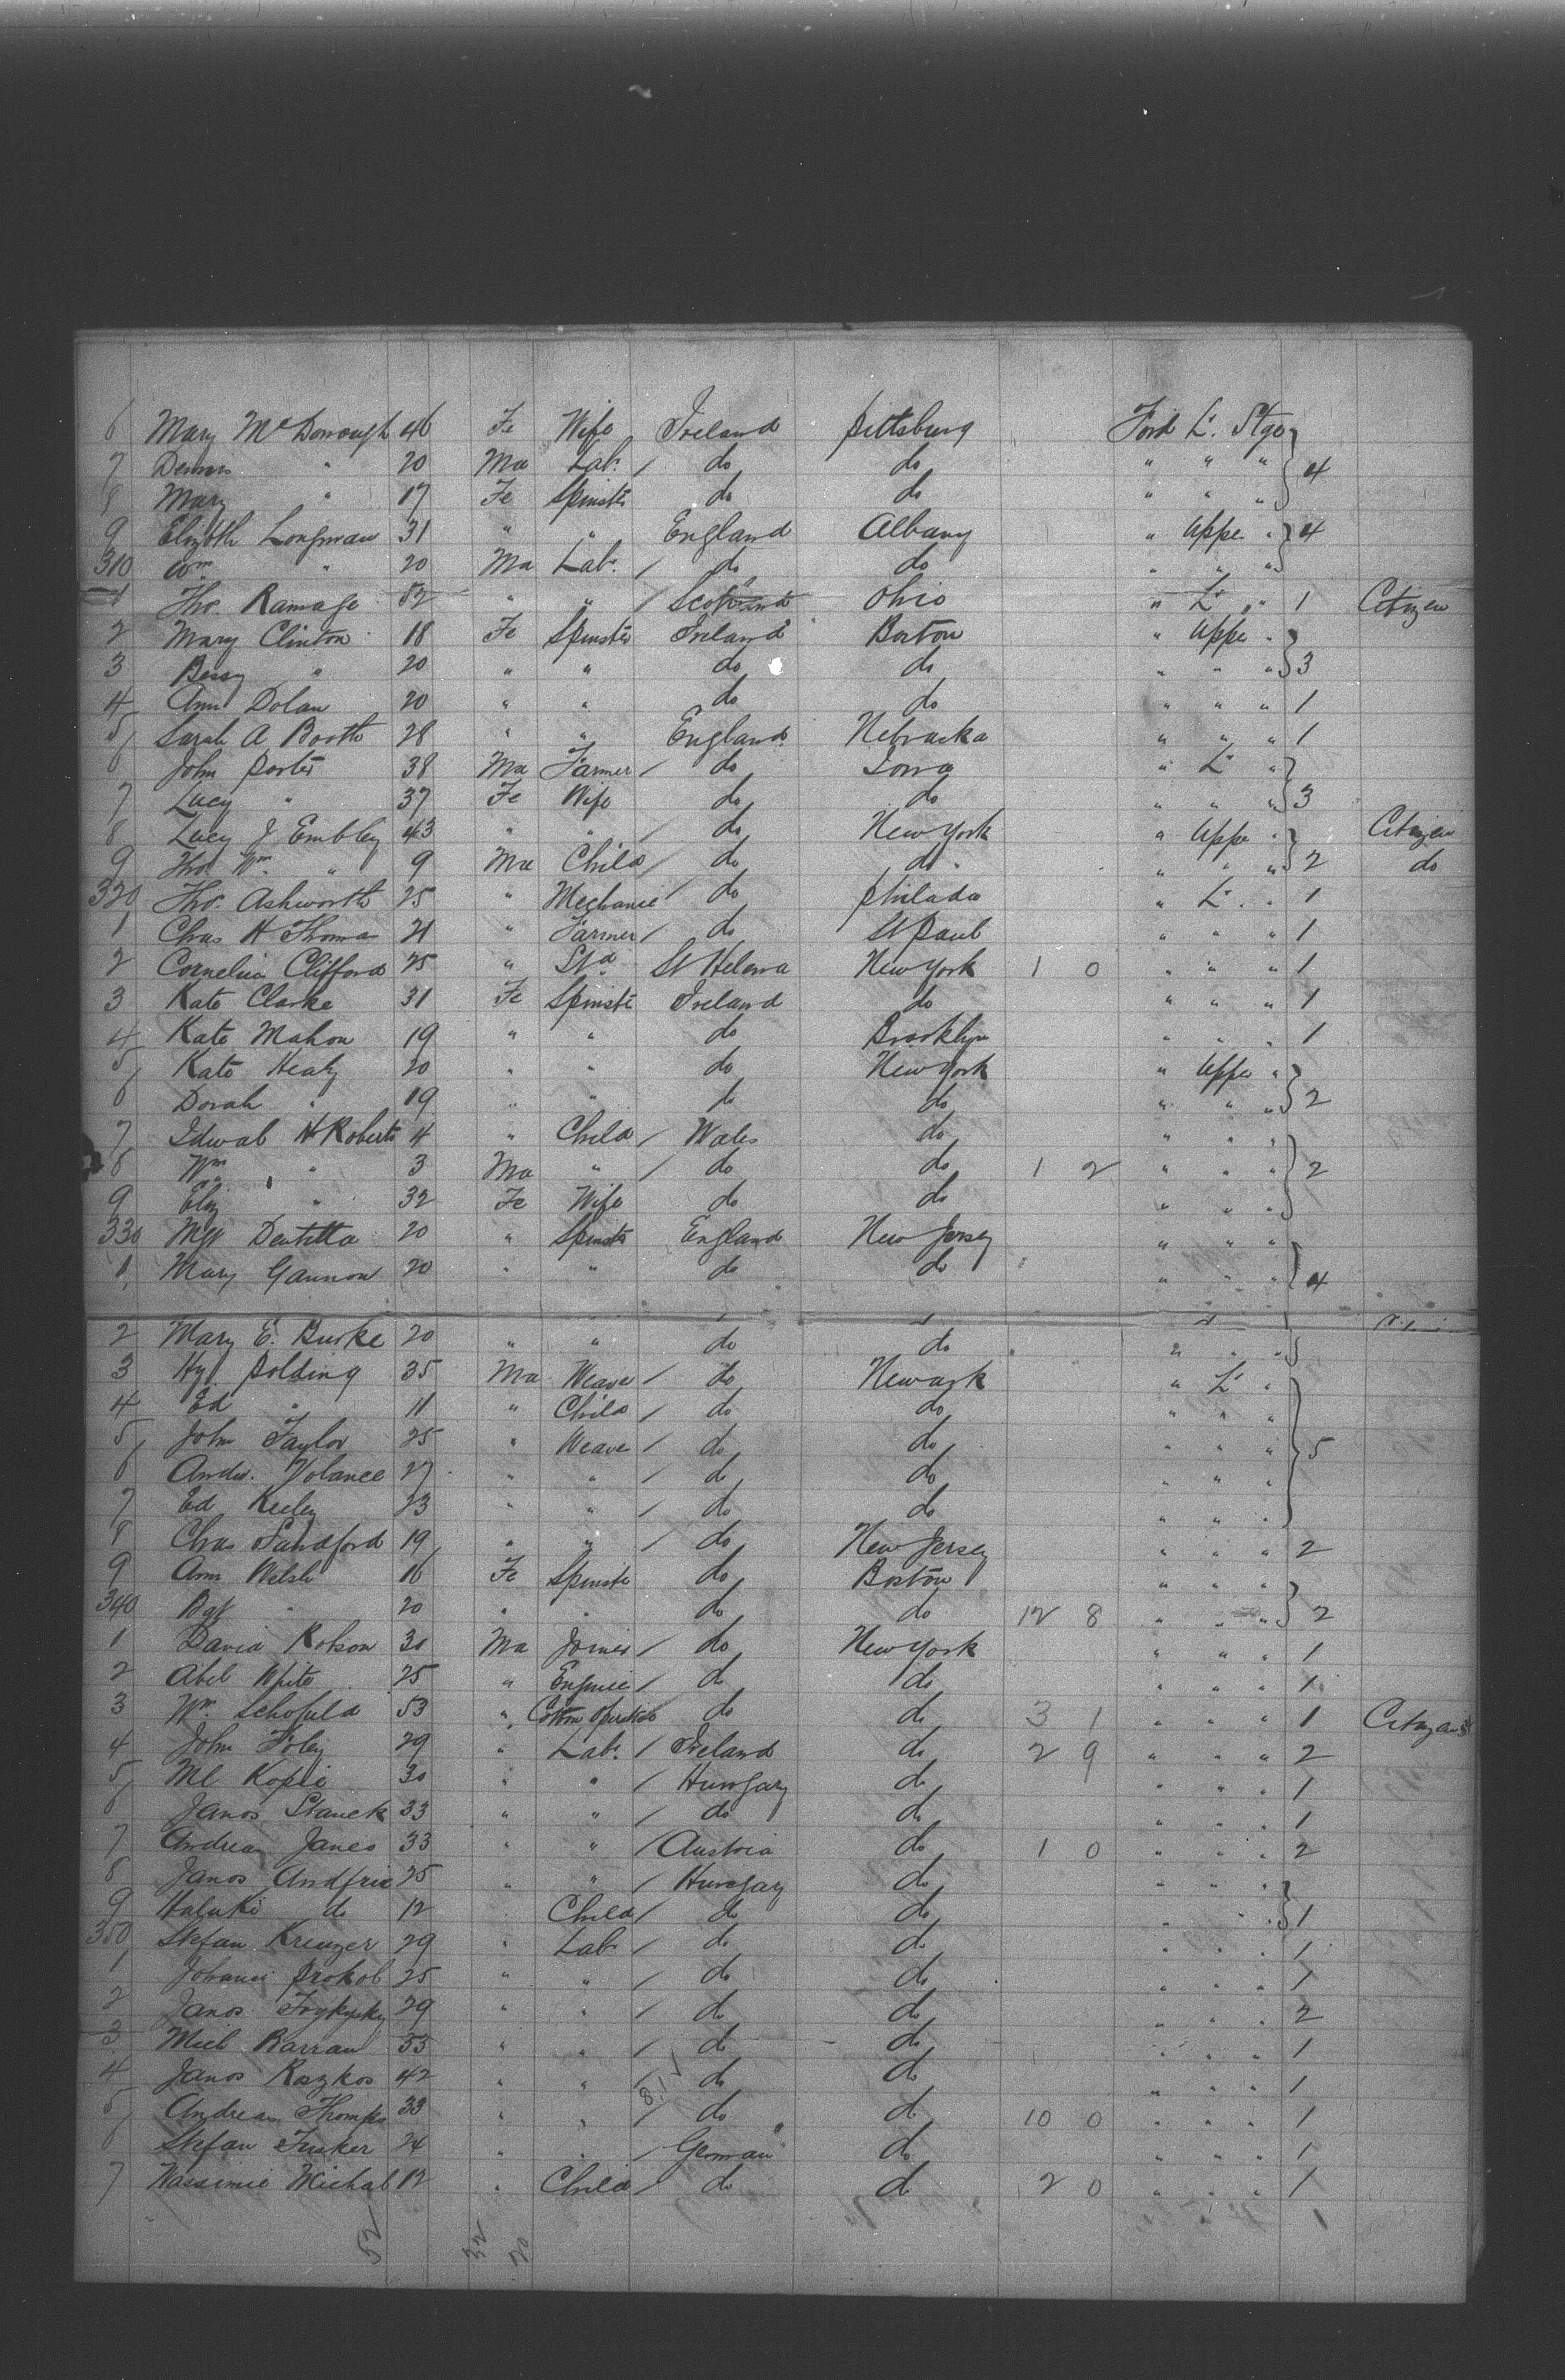 6 Mary McDonough 46 Fe Wife Ireland Pittsburg Ford L. Stge
7 Dennis " 20 Ma Lab. / do do " " " 4
8 Mary " 17 Fe Spinstr do do " " "
9 Elizbth Longman 31 " " England Albany " Uppe " 4
310 Wm " 20 Ma Lab. / do do " " "
1 Tho. Ramage 52 " " / Scotland Ohio " L " 1 Citizen
2 Mary Clinton 18 Fe Spinster Ireland Boston " Uppe "
3 Bessy " 20 " " do do " " " 3
4 Ann Dolan 20 " " do do " " " 1
5 Sarah A Booth 28 " " England Nebraska " " " 1
6 John Porter 38 Ma Farmer / do Iowa " L "
7 Lucy " 37 Fe Wife do do " " " 3
8 Lucy J Embley 43 " " / do New York " Uppe " Citizen
9 Tho. Wm. " 9 Ma Child / do do " " " 2 do
320 Tho. Ashworth 25 " Mechanic / do Philada " L " 1
1 Chas H Thoma 21 " Farmer / do St Paul " " " 1
2 Cornelius Clifford 25 " St Helena New York 1 0 " " " 1
3 Kate Clarke 31 Fe Spinstr Ireland do " " " 1
4 Kate Mahon 19 " " do Brooklyn " " " 1
5 Kate Healy 20 " " do New York " Uppe "
6 Dorah " 19 " " do do " " " 2
7 Idwal H Roberts 4 " Child / Wales do " " "
8 Wm " 3 Ma " / do do 1 2 " " " 2
9 Eliz " 32 Fe Wife do do " " "
330 Mgt 20 " Spinstr England New Jersey " " "
1 Mary Gannon 20 " " do do " " " 4
2 Mary E. Burke 20 " " do do " " "
3 Hy. Polding 35 Ma Weave / do Newark " L "
4 Ed " 11 " Child / do do " " "
5 John Taylor 25 " Weave / do do " " " 5
6 Andw. 27 " " / do do " " "
7 Ed Keeley 23 " " / do do " " "
8 Chas Sandford 19 " " / do New Jersey " " " 2
9 Ann Welsh 16 Fe Spinstr do Boston " " "
340 Bgt " 20 " " do do 12 8 " " " 2
1 David Robson 30 Ma Joiner / do New York " " " 1
2 Abel White 25 " Enginee / do do " " " 1
3 Wm. Schofield 53 " Cotton Operative do do 3 1 " " " 1 Citizen
4 John Foley 29 " Lab. / Ireland do 2 9 " " " 2
5 Ml Kopic 30 " " / Hungary do " " " 1
6 Janos Stanek 33 " " / do do " " " 1
7 Andreas Janes 33 " " / Austria do 1 0 " " " 2
8 Janos 25 " " / Hungary do " " "
9 do 12 " Child / do do " " 1
350 Stefan Kreuzer 29 " Lab / do do " " " 1
1 Prokob 25 " " / do do " " " 1
2 Janos 29 " " / do do " " " 2
3 Mich Barran 33 " " / do do " " " 1
4 Janos Koszkos 42 " " / do do " " " 1
5 Andreas 33 " " / do do 10 0 " " " 1
6 Stefan 24 " " / German do " " " 1
7 Michal 12 " Child / do do 2 0 " " " 1
52 32 20